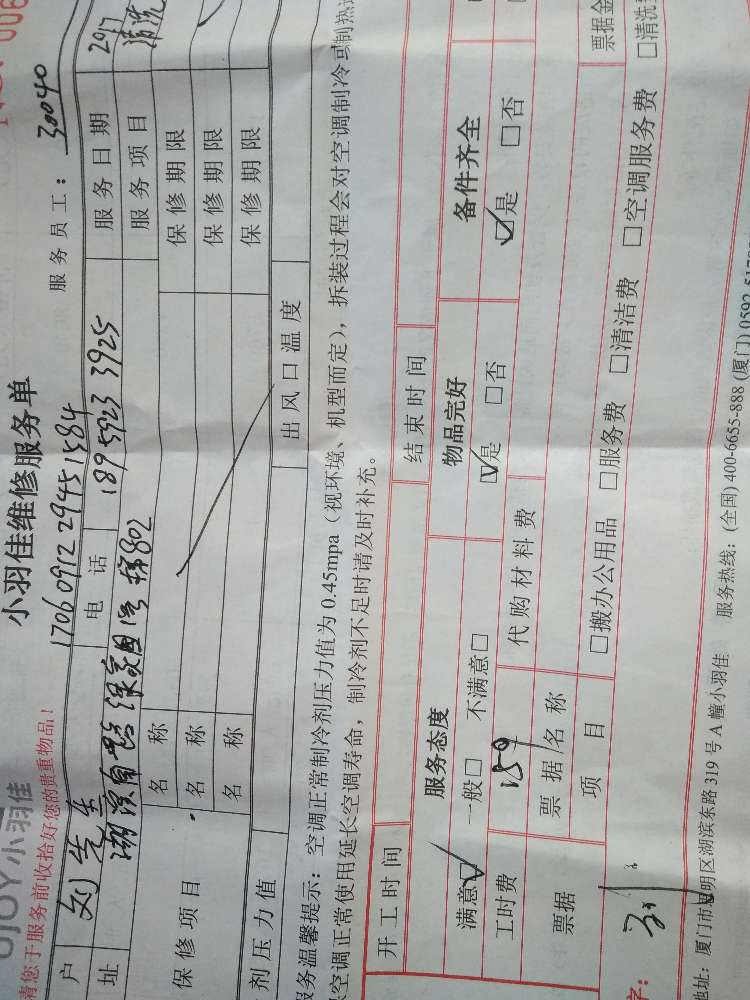 No.006
UJOY小羽佳
小羽佳维修服务单
请您于服务前收拾好您的贵重物品！
1706091229451584
服务员工：30040
户 刘先生 电话 189 5923 3925 服务日期
址 802 服务项目 清洗
保修项目
名称 保修期限
名称 保修期限
名称 保修期限
剂压力值 出风口温度
服务温馨提示：空调正常制冷剂压力值为0.45mpa（视环境、机型而定），拆装过程会对空调制冷或制热
空调正常使用延长空调寿命，制冷剂不足时请及时补充。
开工时间 结束时间
服务态度 物品完好 备件齐全
满意☑ 一般□ 不满意□ ☑是 □否 ☑是 □否
工时费 159 代购材料费
票据 票据/名称 票据金
项目 □搬办公用品 □服务费 □清洁费 □空调服务费 □清洗
字：刘
地址：厦门市思明区湖滨东路319号A幢小羽佳 服务热线：(全国) 400-6655-888 (厦门) 0592